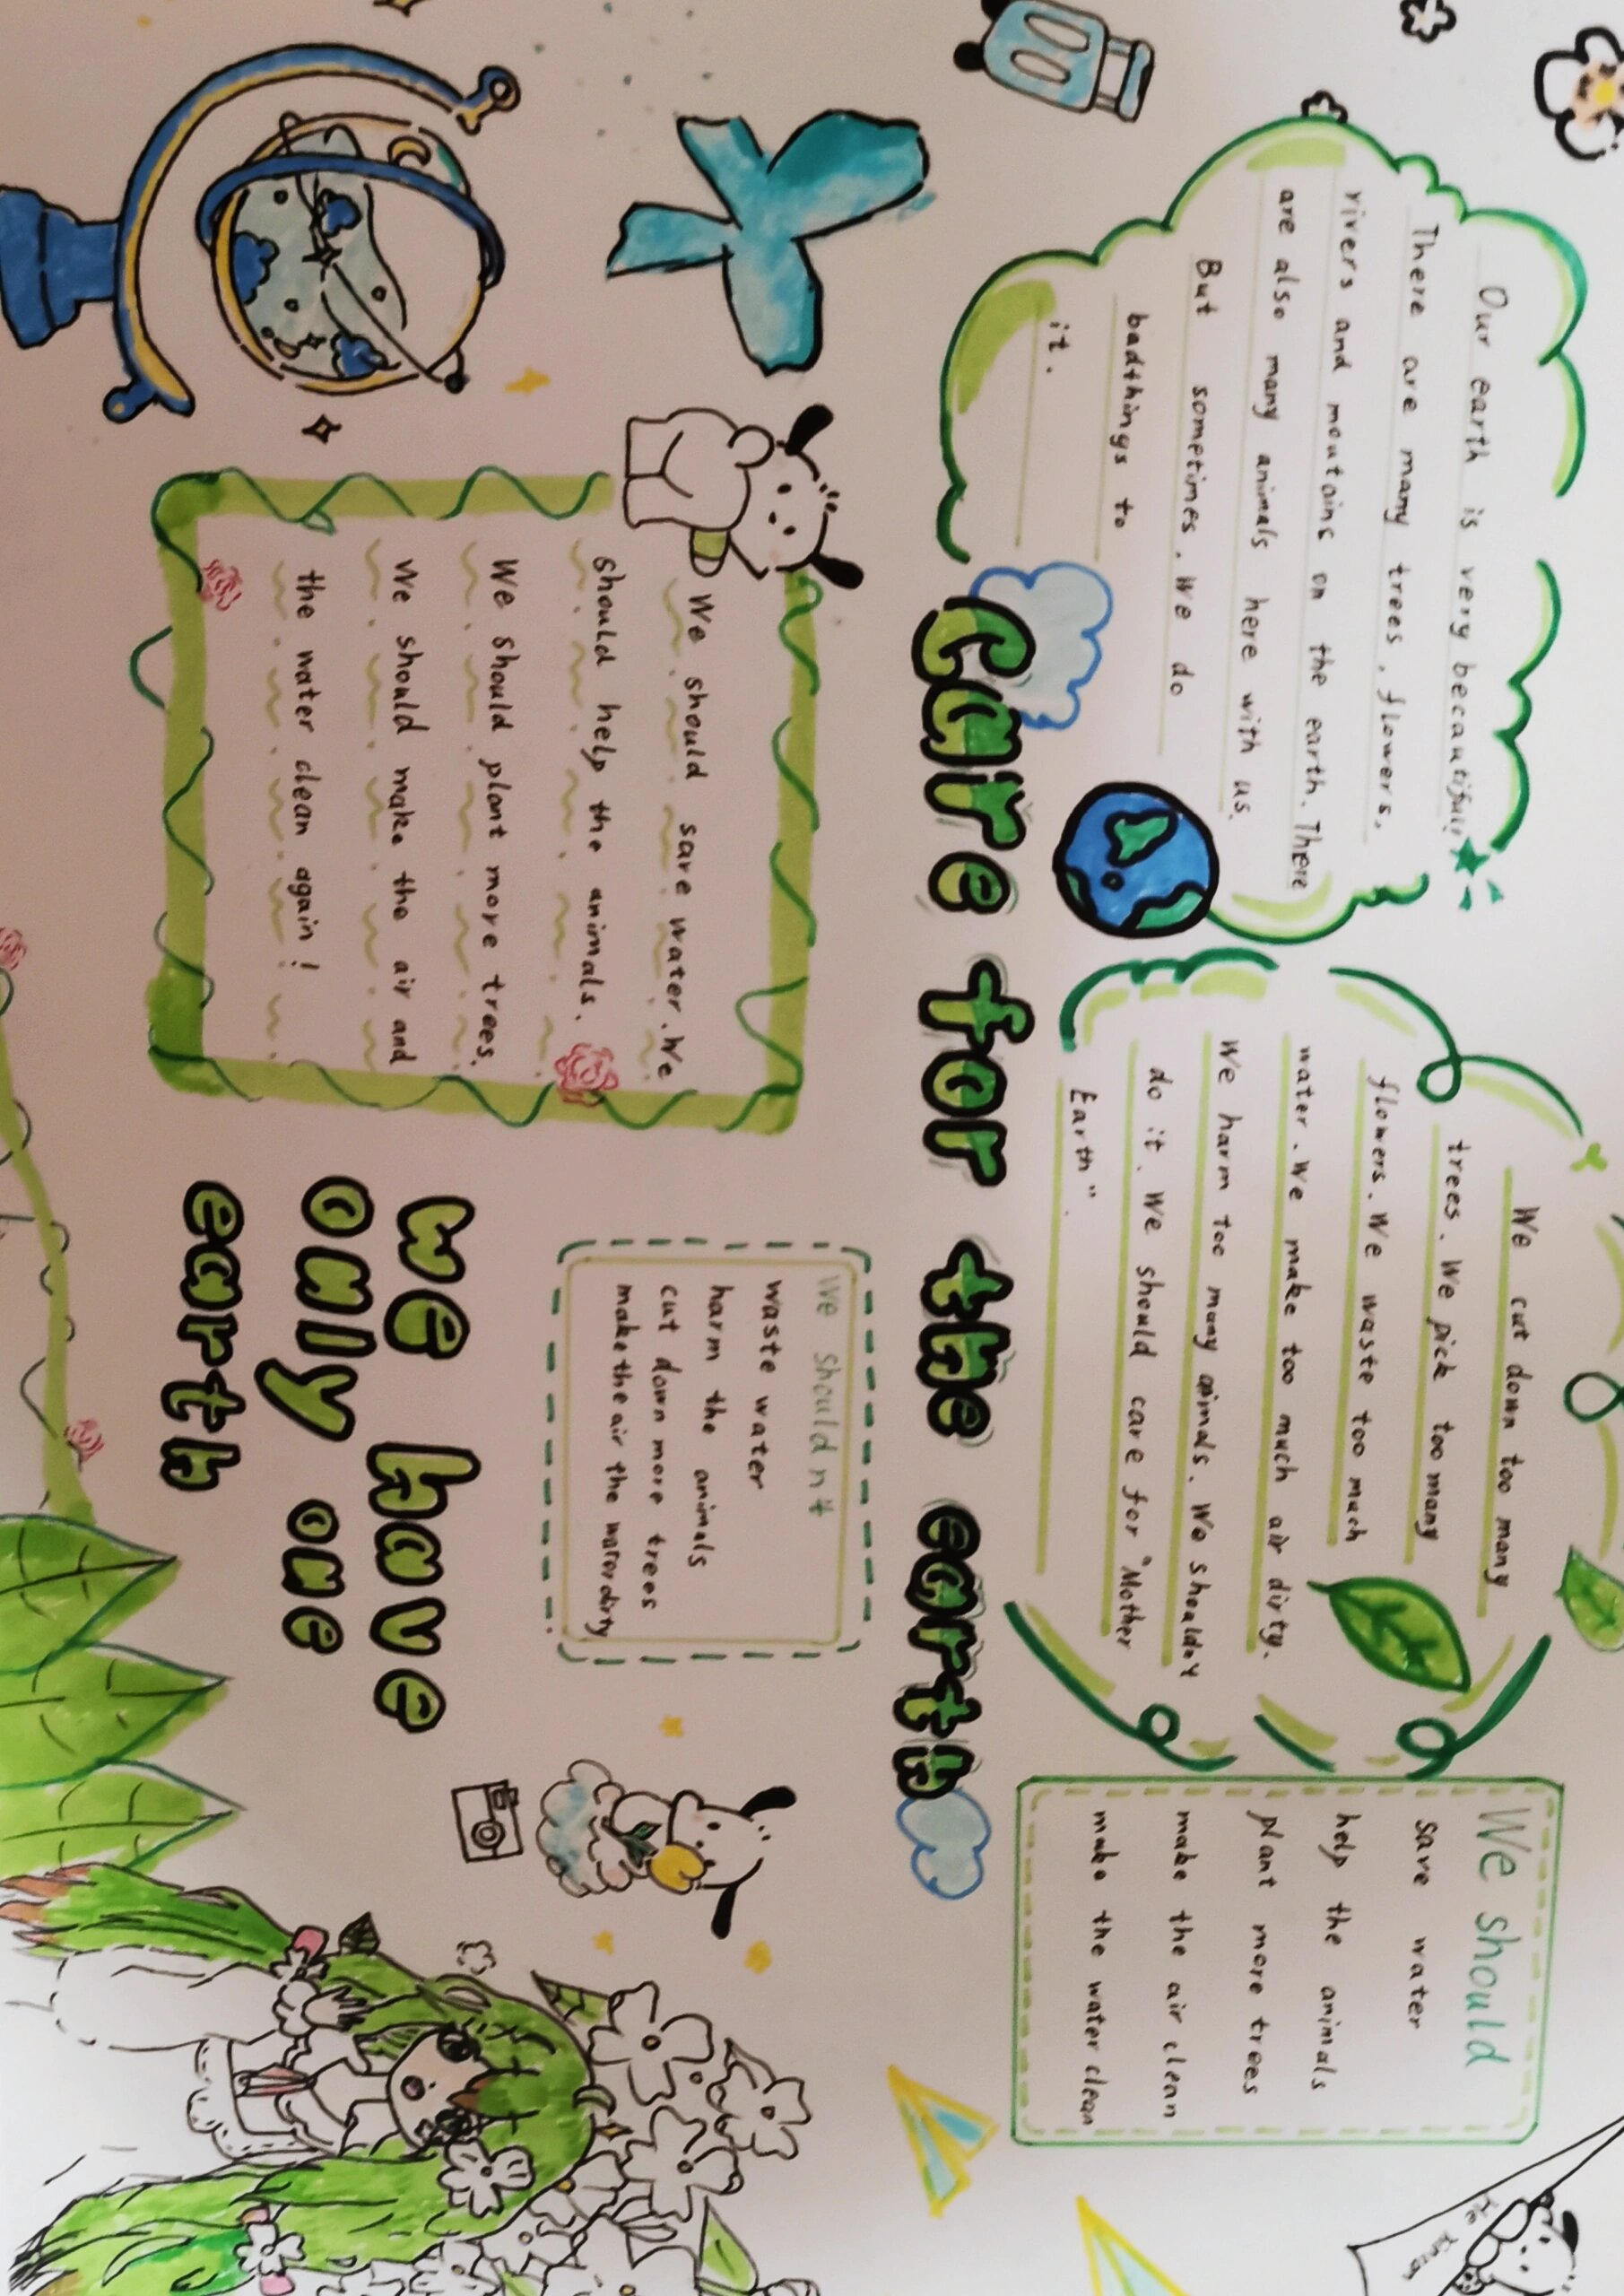 Our earth is very becautiful!
There are many trees, flowers,
rivers and moutains on the earth. There
are also many animals here with us.
But sometimes. We do
badthings to
it.
We cut down too many
trees. We pick too many
flowers. We waste too much
water. We make too much air dirty.
We harm too many animals. We shouldn't
do it. We should care for "Mother
Earth".
We should
save water
help the animals
plant more trees
make the air clean
make the water clean
Care for the earth
We should save water. We
should help the animals.
We should plant more trees.
We should make the air and
the water clean again!
We shouldn't
waste water
harm the animals
cut down more trees
make the air the water dirty
we have
only one
earth